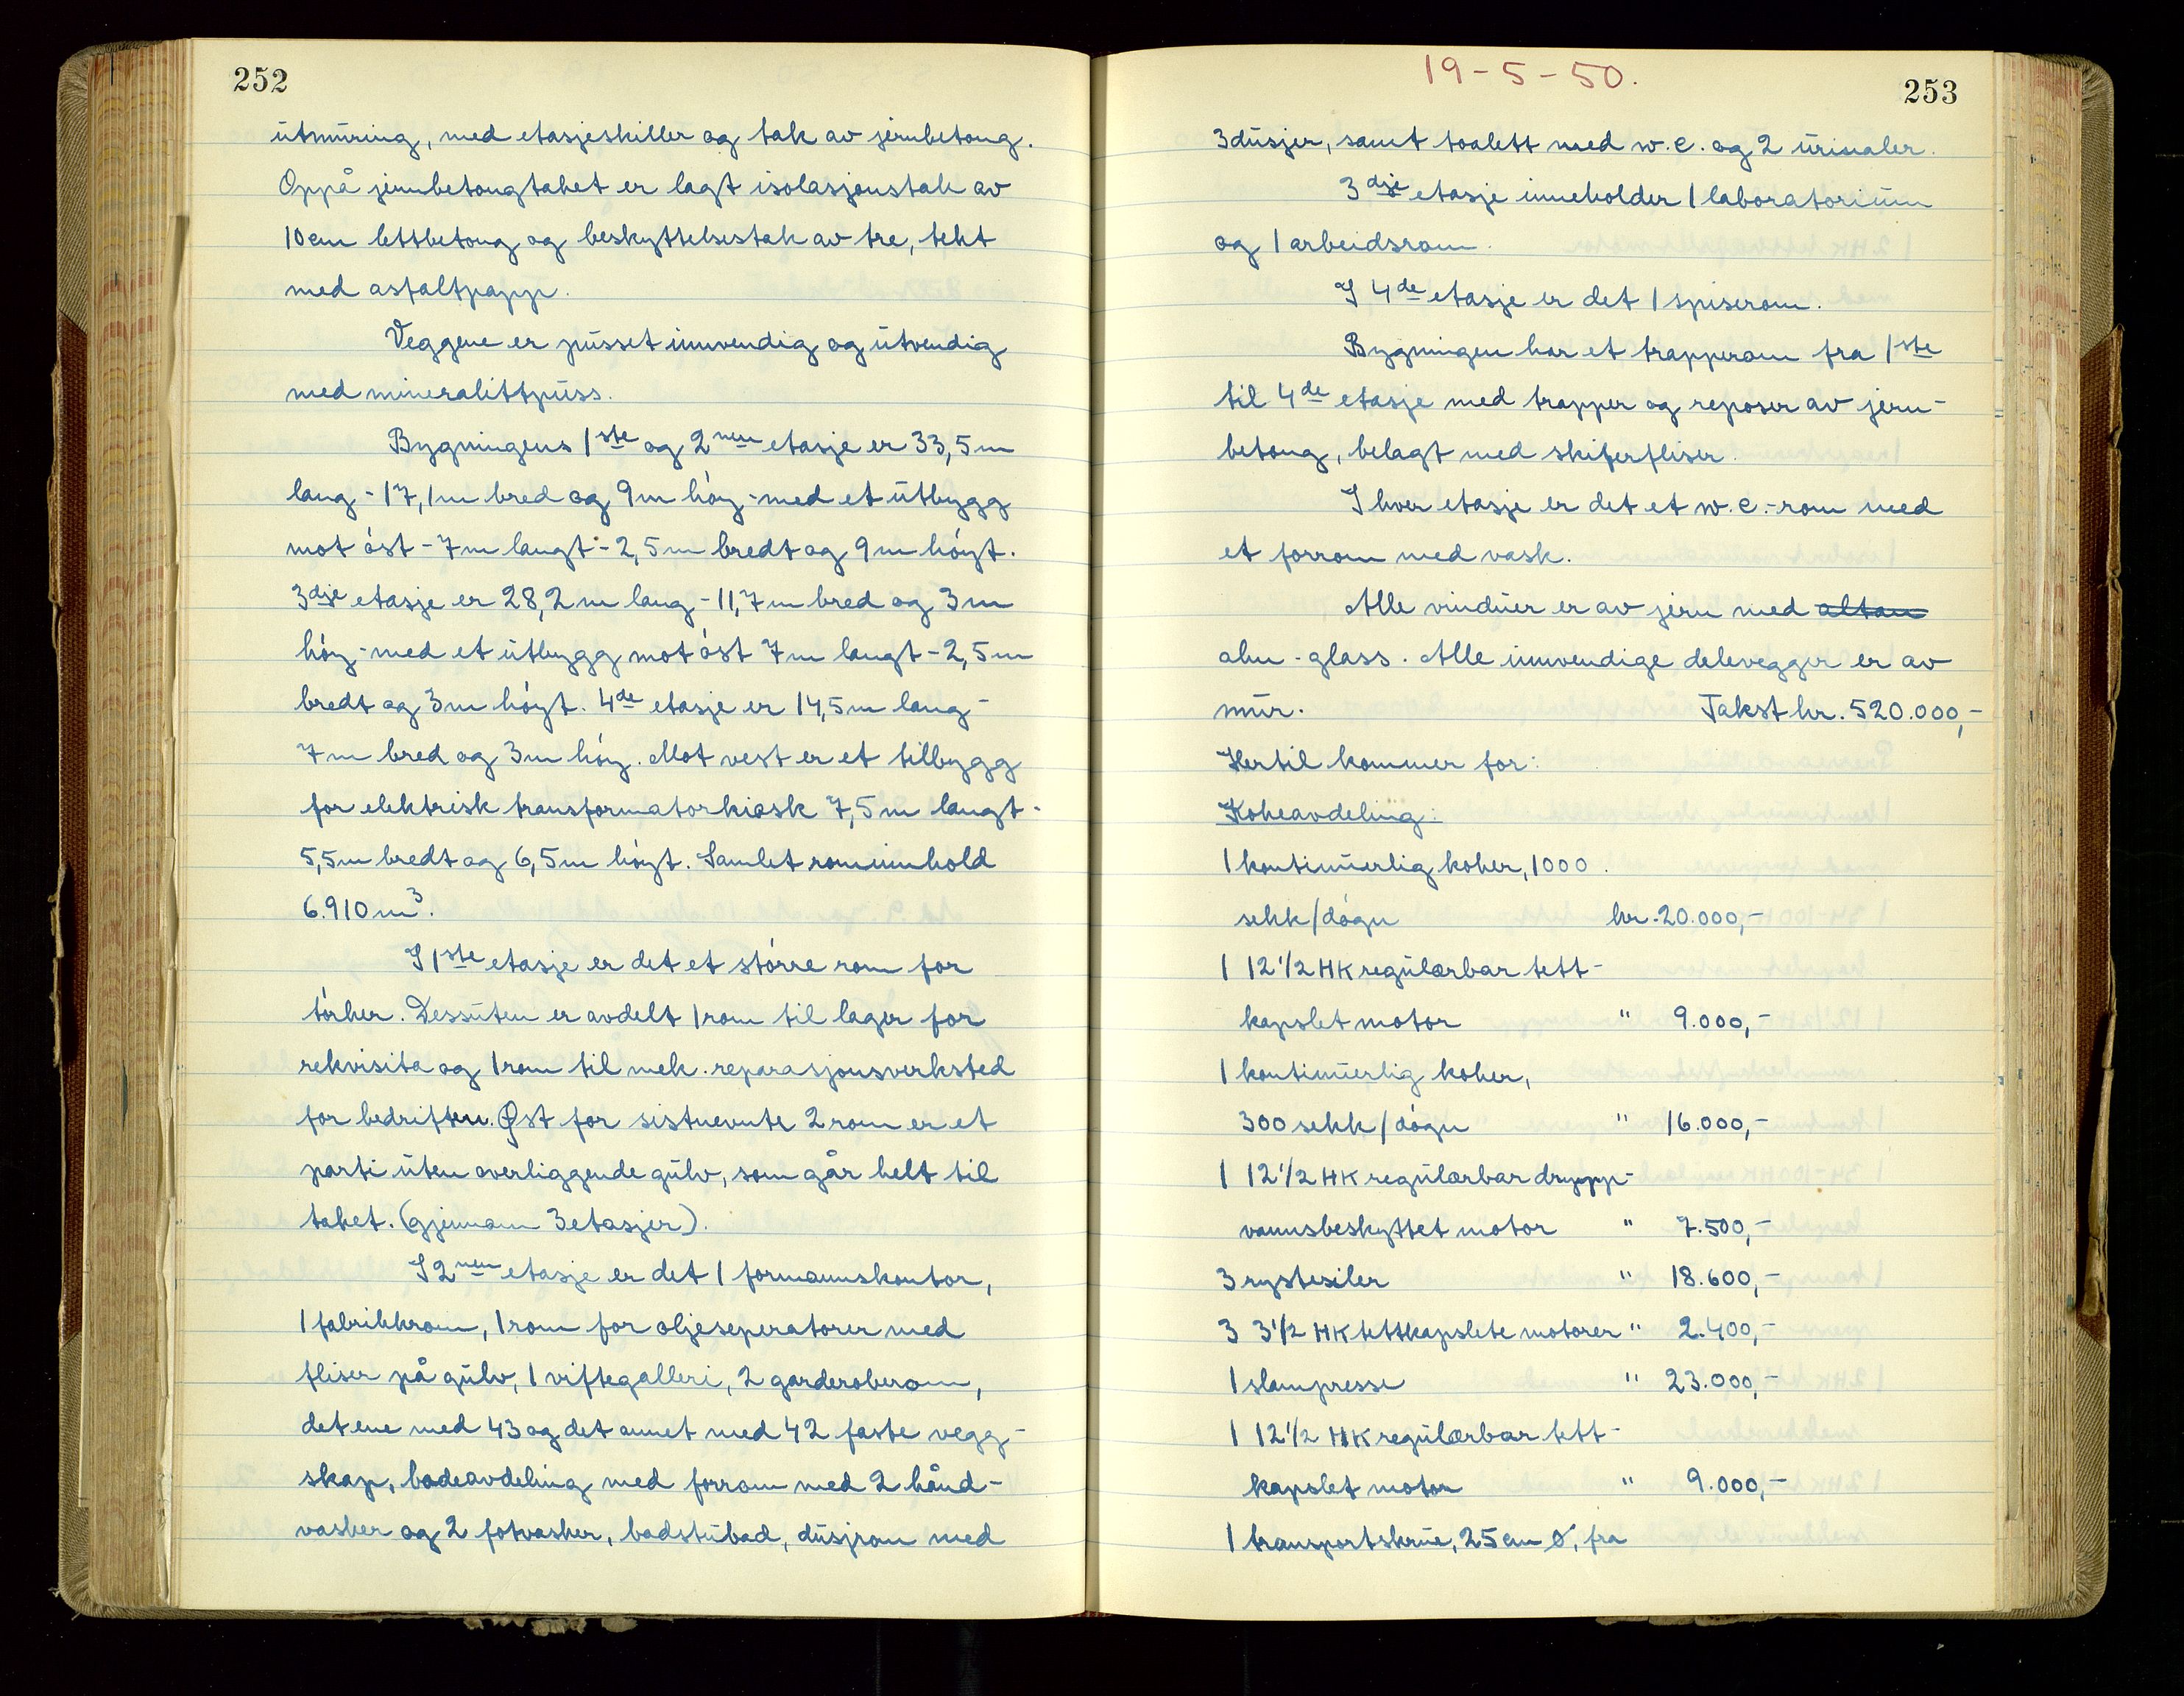 252
utmuring, med etasjeskiller og tak av jernbetong.
Oppå jernbetongtaket er lagt isolasjonstak av
10 cm lettbetong og beskyttelsestak av tre, tekt
med asfaltpapp.
Veggene er pusset innvendig og utvendig
med mineralittpuss.
Bygningens 1ste og 2nen etasje er 33,5 m
lang - 17,1 m bred og 9 m høy - med et utbygg
mot øst - 7 m langt - 2,5 m bredt og 9 m høyt.
3dje etasje er 28,2 m lang - 11,7 m bred og 3 m
høy - med et utbygg mot øst 7 m langt - 2,5 m
bredt og 3 m høyt. 4de etasje er 14,5 m lang -
7 m bred og 3 m høy. Mot vest er et tilbygg
for elektrisk transformatorkiosk 7,5 m langt -
5,5 m bredt og 6,5 m høyt. Samlet rominnhold
6.910 m³.
I 1ste etasje er det et større rom for
tørker. Dessuten er avdelt 1 rom til lager for
rekvisita og 1 rom til mek. reparasjonsverksted
for bedriften. Øst for sistnevnte 2 rom er et
parti uten overliggende gulv, som går helt til
taket. (gjennom 3 etasjer).
I 2nen etasje er det 1 formannskontor,
1 fabrikkrom, 1 rom for oljeseperatorer med
fliser på gulv, 1 viftegalleri, 2 garderoberom,
det ene med 43 og det annet med 42 faste vegg-
skap, badeavdeling med forrom med 2 hånd-
vasker og 2 fotvasker, badstubad, dusjrom med
19-5-50.
253
3 dusjer, samt toalett med w.c. og 2 urinaler.
3dje etasje inneholder 1 laboratorium
og 1 arbeidsrom.
I 4de etasje er det 1 spiserom.
Bygningen har et trapperom fra 1ste
til 4de etasje med trapper og reposer av jern-
betong, belagt med skiferfliser.
I hver etasje er det et w.c.-rom med
et forrom med vask.
Alle vinduer er av jern med altan
alm-glass. Alle innvendige delevegger er av
mur. Takst kr. 520.000,-
Hertil kommer for:
Kokeavdeling:
1 kontinuerlig koker, 1000
sekk/døgn kr. 20.000,-
1 12 1/2 HK regulærbar tett-
kapslet motor " 9.000,-
1 kontinuerlig koker,
300 sekk/døgn " 16.000,-
1 12 1/2 HK regulærbar drypp-
vannsbeskyttet motor " 7.500,-
3 rystesiler " 18.600,-
3 3 1/2 HK tettkapslete motorer " 2.400,-
1 slampresse " 23.000,-
1 12 1/2 HK regulærbar tett-
kapslet motor " 9.000,-
1 transportskrue, 25 cm ø, fra